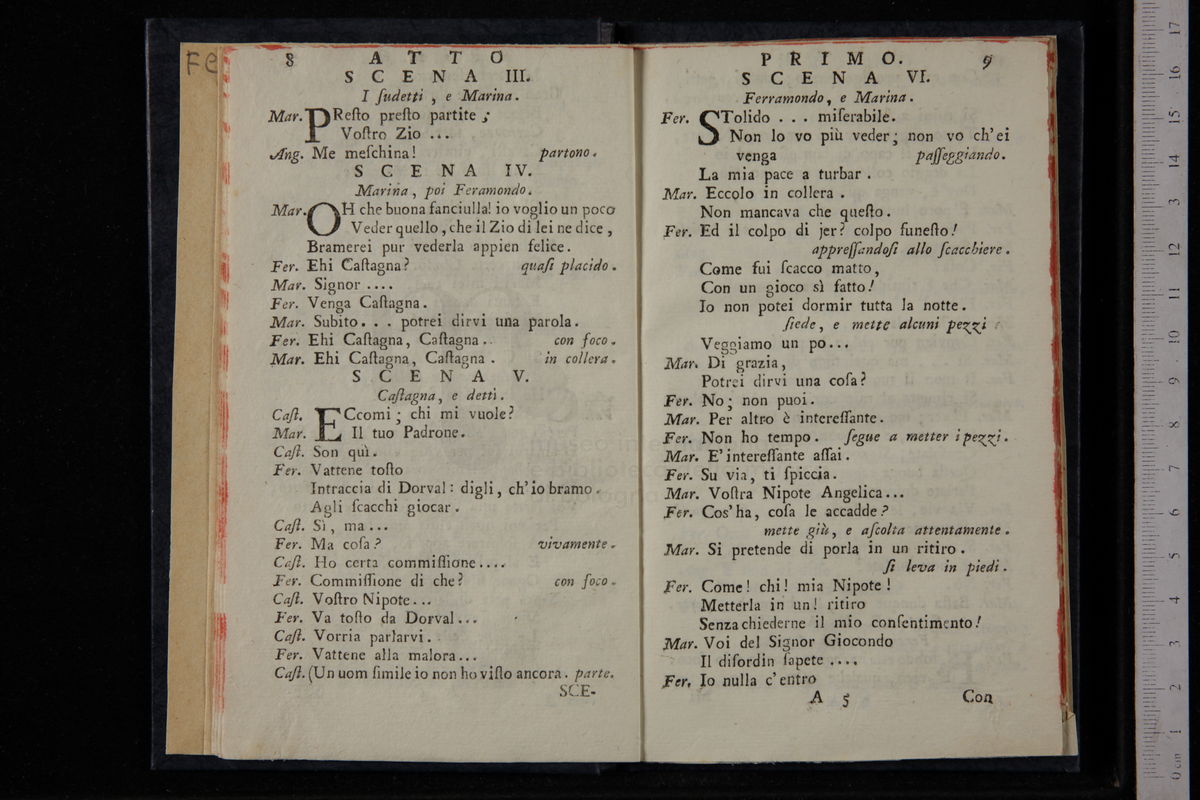 Fe
8 ATTO
SCENA III.
I ſudetti , e Marina.
Mar. PReſto preſto partite ;
Voſtro Zio ...
Ang. Me meſchina! partono.
SCENA IV.
Marina, poi Feramondo.
Mar. OH che buona fanciulla! io voglio un poco
Veder quello, che il Zio di lei ne dice ,
Bramerei pur vederla appien felice.
Fer. Ehi Caſtagna? quaſi placido.
Mar. Signor ....
Fer. Venga Caſtagna.
Mar. Subito... potrei dirvi una parola.
Fer. Ehi Caſtagna, Caſtagna. con foco.
Mar. Ehi Caſtagna, Caſtagna . in collera.
SCENA V.
Caſtagna, e detti.
Caſt. ECcomi ; chi mi vuole?
Mar. Il tuo Padrone.
Caſt. Son quì.
Fer. Vattene toſto
Intraccia di Dorval: digli, ch'io bramo.
Agli ſcacchi giocar.
Caſt. Sì, ma...
Fer. Ma coſa? vivamente.
Caſt. Ho certa commiſſione....
Fer. Commiſſione di che? con foco.
Caſt. Voſtro Nipote...
Fer. Va toſto da Dorval...
Caſt. Vorria parlarvi.
Fer. Vattene alla malora...
Caſt. (Un uom ſimile io non ho viſto ancora. parte.
SCE-
PRIMO. 9
SCENA VI.
Ferramondo, e Marina.
Fer. STolido ... miſerabile.
Non lo vo più veder; non vo ch'ei
venga paſſeggiando.
La mia pace a turbar .
Mar. Eccolo in collera .
Non mancava che queſto.
Fer. Ed il colpo di jer? colpo funeſto!
appreſſandoſi allo ſcacchiere.
Come fui ſcacco matto,
Con un gioco sì fatto!
Io non potei dormir tutta la notte.
ſiede, e mette alcuni pezzi
Veggiamo un po...
Mar. Di grazia,
Potrei dirvi una coſa?
Fer. No; non puoi.
Mar. Per altro è intereſſante.
Fer. Non ho tempo. ſegue a metter i pezzi.
Mar. E' intereſſante aſſai.
Fer. Su via, ti ſpiccia.
Mar. Voſtra Nipote Angelica...
Fer. Cos'ha, coſa le accadde?
mette giù, e aſcolta attentamente.
Mar. Si pretende di porla in un ritiro.
ſi leva in piedi.
Fer. Come! chi! mia Nipote!
Metterla in un! ritiro
Senza chiederne il mio conſentimento!
Mar. Voi del Signor Giocondo
Il diſordin ſapete ....
Fer. Io nulla c'entro
A 5 Con
0 cm 1 2 3 4 5 6 7 8 9 10 11 12 13 14 15 16 17